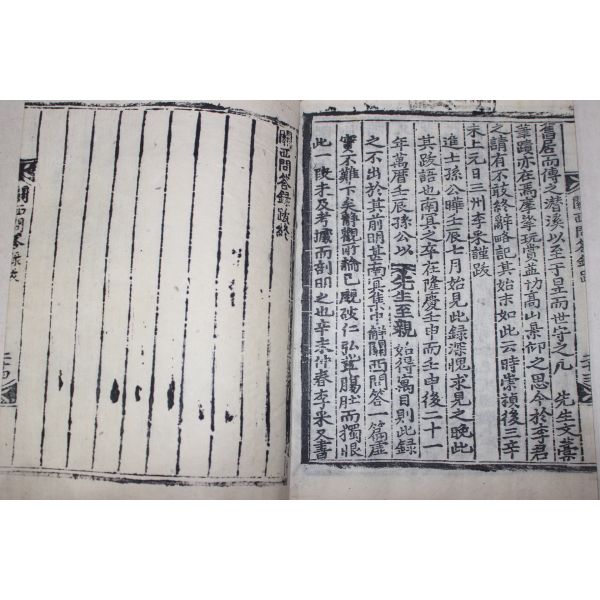 舊居而傳之潜溪以至于是而世守之凡 先生文藁
筆蹟亦在焉產挲玩賞益切高山景仰之思今於李君
之請有不敢終辭略記其始末如此云時崇禎後三辛
未上元日三州李采謹跋
進士孫公曄壬辰十月始見此録深愧求見之晚此
其跋語也南冥之卒在隆慶壬申而壬申後二十一
年萬曆壬辰孫公以 先生至親 始得寓目則此録
之不出於其前明甚南冥集中解關西問答一篇虛
實不難下矣觀所論已颰破仁弘輩膓肚而獨恨
此一段未及考據而剖明之也辛未仲春李采又書
關西問答録跋
二十三
關西問答録跋終
關西問答録跋
二十四